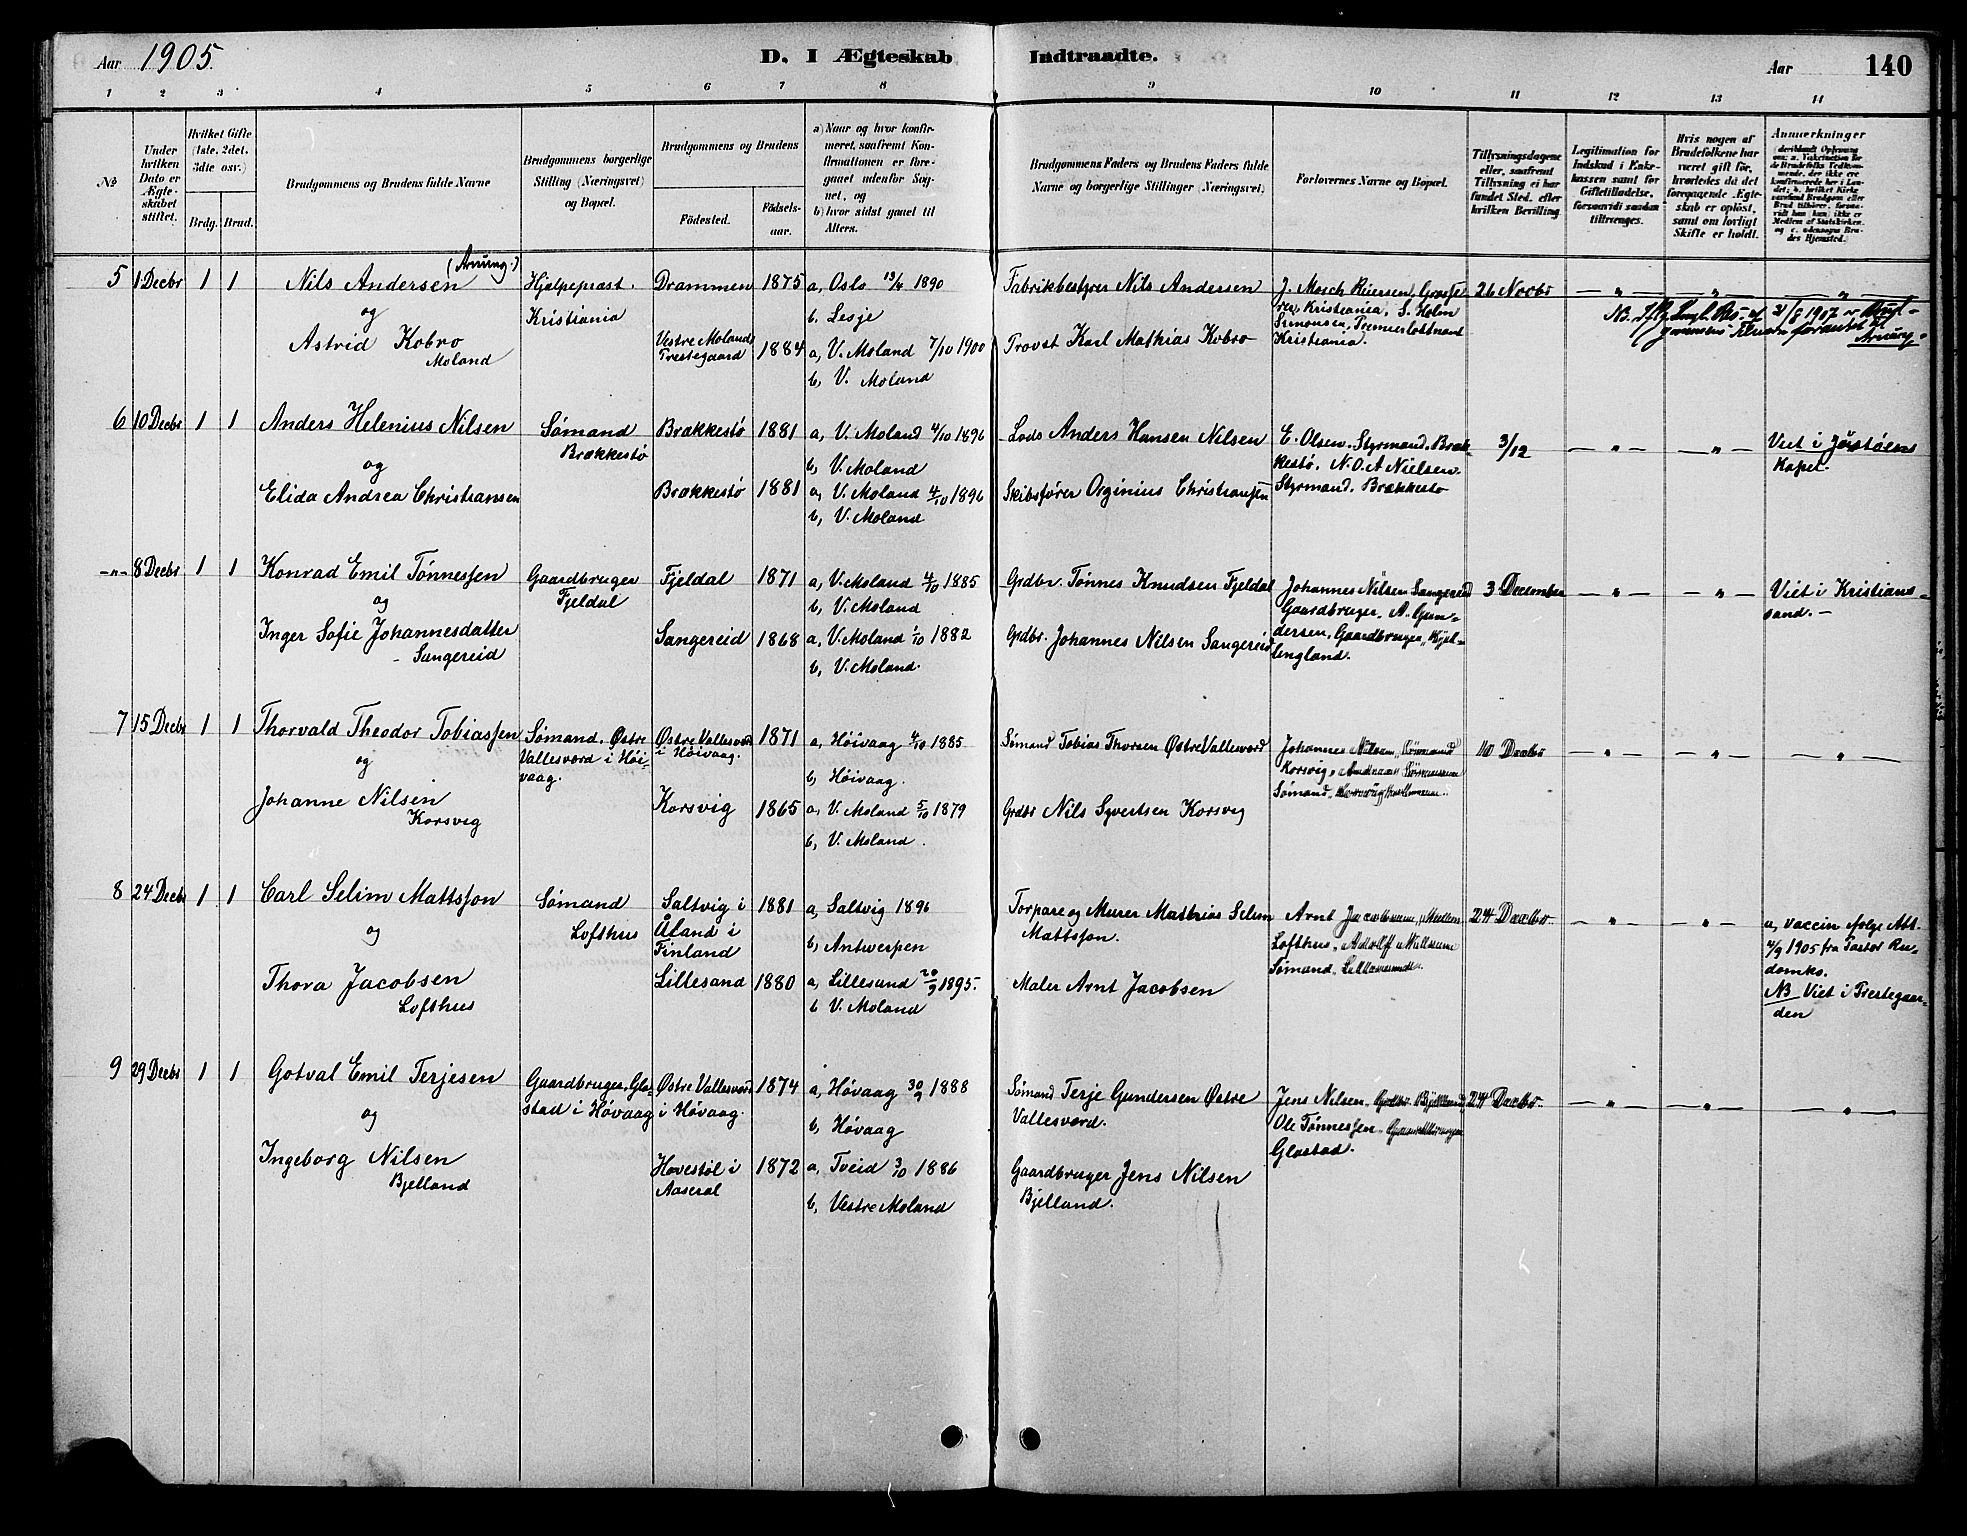 Aar 1905.
D. I Ægteskab Indtraadte.
Aar 140
1 2 3 4 5 6 7 8 9 10 11 12 13 14
No.
Under hvilken Dato er Ægteskabet stiftet.
Hvilket Gifte (1ste, 2det, 3die osv.)
Brdg. Brud.
Brudgommens og Brudens fulde Navne
Brudgommens borgerlige Stilling (Næringsvei) og Bopæl.
Brudgommens og Brudens
Födested.
Födselsaar.
a) Naar og hvor konfirmeret, saafremt Konfirmationen er foregaaet udenfor Sognet, og
b) hvor sidst gaaet til Alters.
Brudgommens Faders og Brudens Faders fulde Navne og borgerlige Stillinger (Næringsvei)
Forlovernes Navne og Bopæl.
Tillysningsdagene eller, saafremt Tillysning ei har fundet Sted, efter hvilken Bevilling.
Legitimation for Indskud i Enkekassen samt for Giftetilladelse, forsaavidt saadan tiltrænges.
Hvis nogen af Brudefolkene har været gift før, hvorledes da det foregaaende Ægteskab er oplöst, samt om lovligt Skifte er holdt.
Anmærkninger
5 1 Decbr 1 1 Nils Andersen (Arnung.)
og
Astrid Kobro
Moland
Hjælpeprast.
Kristiania
Drammen 1875 a, Oslo 13/4 1890
b. Lesje
Vestre Molands Prestegaard 1884 a, V. Moland 7/10 1900
b, V. Moland
Fabrikbestyrer Nils Andersen
Provst Karl Mathias Kobro
J. Mosch Reiersen, Grosserer, Kristiania, S. Holm
Simonsen, Premierløitnant
Kristiania.
26 Novbr — " — — " — — " —
6 10 Decbr 1 1 Anders Helenius Nilsen
og
Elida Andrea Christiansen
Sømand
Brækkestø
Brækkestø 1881 a, V. Moland 4/10 1896
b, V. Moland
Brækkestø 1881 a, V. Moland 4/10 1896
b, V. Moland
Lods Anders Hansen Nilsen
Skibsfører Orginius Christiansen
E. Olsen, Styrmand, Brækkestø. N. O. A Nielsen
Styrmand. Brækkestø
3/12 — " — — " — Viet i Justøens
Kapel.
-"- 8 Decbr 1 1 Konrad Emil Tønnessen
og
Inger Sofie Johannesdatter
- Sangereid
Gaardbruger
Fjeldal
Fjeldal 1871 a, V. Moland 4/10 1885
b, V. Moland
Sangereid 1868 a, V. Moland 1/10 1882
b, V. Moland.
Grdbr. Tønnes Knudsen Fjeldal
Grdbr. Johannes Nilsen Sangereid
Johannes Nilsen Sangereid
Gaardbruger, A. Gundersen, Gaardbruger,
3 December — " — — " — Viet i Kristianssand. —
7 15 Decbr 1 1 Thorvald Theodor Tobiassen
og
Johanne Nilsen
Korsvig
Sømand, Østre
Vallesværd i Høivaag.
Østre Vallesværd
i Høivaag. 1871 a, Høivaag 4/10 1885
b, Høivaag.
Korsvig 1865 a, V. Moland 5/10 1879
b, V. Moland.
Sømand Tobias Thorsen Østre Vallesværd
Grdbr Nils Syvertsen Korsvig
Johannes Nilsen, Sømand
Korsvig,
Sømand,
10 Decbr — " — — " — — " —
8 24 Decbr 1 1 Carl Selim Mattsson
og
Thora Jacobsen
Lofthus
Sømand
Lofthus
Saltvig i
Åland i
Finland 1881 a, Saltvig 1896
b, Antwerpen
Lillesand 1880 a, Lillesand 20/9 1895.
b V. Moland
Torpare og Murer Mathias Selim
Mattsson.
Maler Arnt Jacobsen
Arnt Jacobsen,
Lofthus, Adolff
Sømand,
24 Decbr — " — — " — a, vaccin ifølge Att.
4/9 1905 fra Pastor Rudomko.
NB Viet i Prestegaarden
9 29 Decbr 1 1 Gotval Emil Terjesen
og
Ingeborg Nilsen
Bjelland
Gaardbruger, Glastad i Høvaag
Østre Vallesværd
i Høvaag. 1874 a, Høvaag 30/9 1888
b, Høvaag
Hovestøl i
Aaseral 1872 a, Tveid 3/10 1886
b, Vestre Moland
Sømand Terje Gundersen Østre
Vallesværd.
Gaardbruger Jens Nilsen
Bjelland.
Jens Nilsen, Grdbr Bjelland,
Ole Tønnessen, Gaardbruger
Glastad.
24 Decbr. — " — — " — — " —